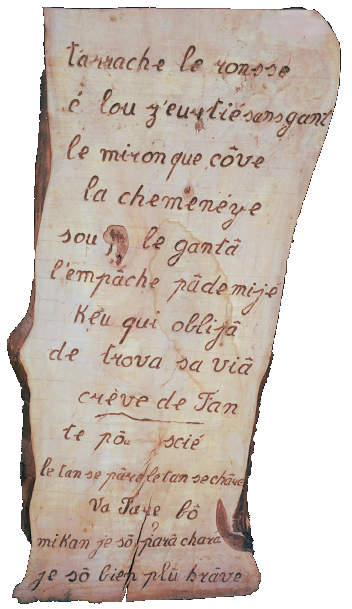 t'arrache le ronsse
é lou z'eurtiésansgant
le mironque côve
la chemenéye
sou le gantâ
l'empâche pâdemijé
Keu qui oblijâ
de trova sa viâ
crève de Fan
te pô scié
le tan se pâra le tan se châre
Va Faye bô
mi Kan je sô para chara
je sô bien plû brâve